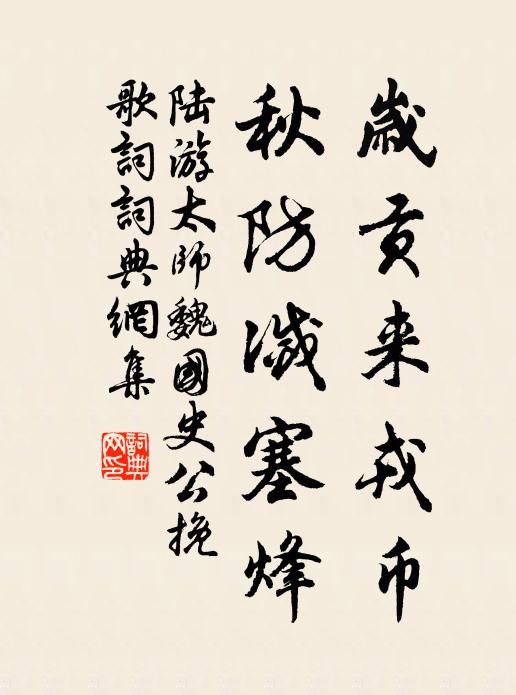 歲貢來戎币
秋防滅塞烽
陆游太師魏國史公挽
歌詞詞典網集
詞典网印